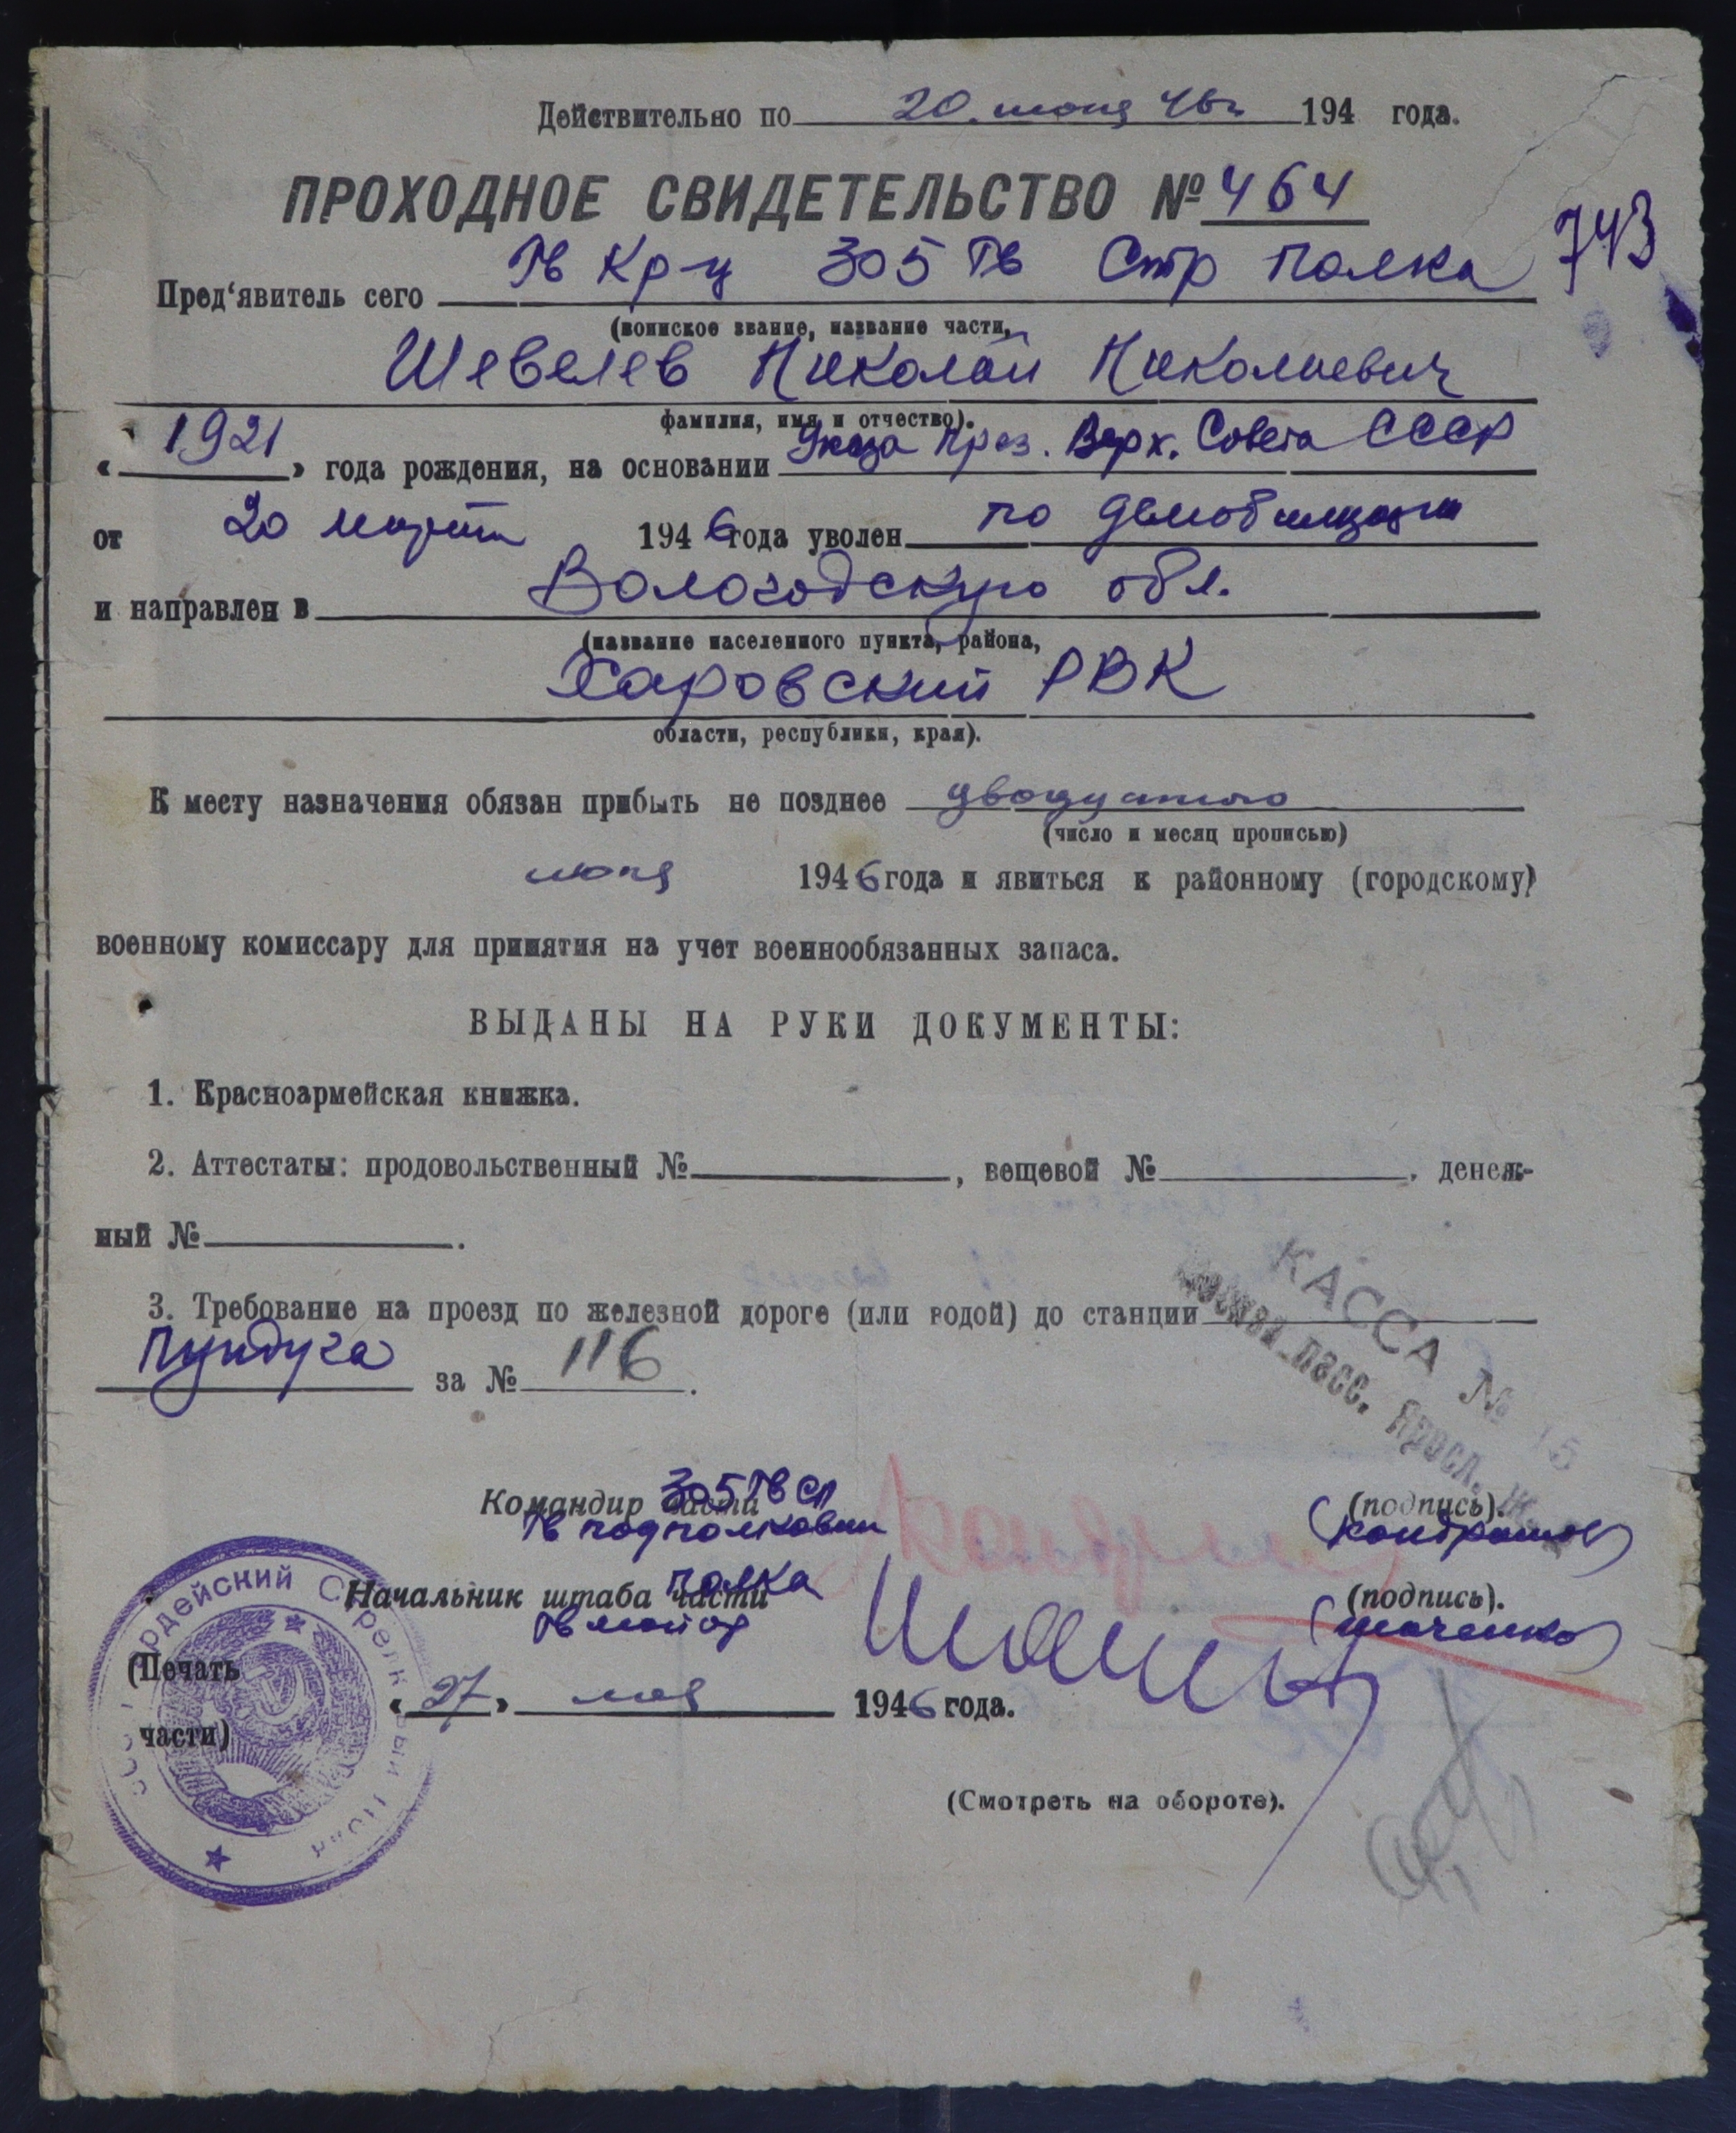 Действительно по 20. июня 46г 194 года.
ПРОХОДНОЕ СВИДЕТЕЛЬСТВО № 464
743
Пред‘явитель сего Гв Кр-ц 305 Гв Стр полка
(воинское звание, название части,
Шевелев Николай Николаевич
фамилия, имя и отчество).
« 1921 » года рождения, на основании Указа През. Верх. Совета СССР
от 20 марта 1946 года уволен по демобилизации
и направлен в Вологодскую обл.
(название населенного пункта, района,
Харовский РВК
области, республики, края).
К месту назначения обязан прибыть не позднее двадцатого
(число и месяц прописью)
июня 1946 года и явиться к районному (городскому)
военному комиссару для принятия на учет военнообязанных запаса.
ВЫДАНЫ НА РУКИ ДОКУМЕНТЫ:
1. Красноармейская книжка.
2. Аттестаты: продовольственный №, вещевой №, денеж-
ный №.
КАССА № 15
Москва пасс. Яросл. ж.
3. Требование на проезд по железной дороге (или водой) до станции
Пундуга за № 116.
305 Гв СП
Командир части (подпись).
Гв подполковник (Кондрашов)
полка
Начальник штаба части (подпись).
Гв майор
Гвардейский Стрелковый Полк
(Печать
« 27 » мая 1946 года.
части)
(Смотреть на обороте).